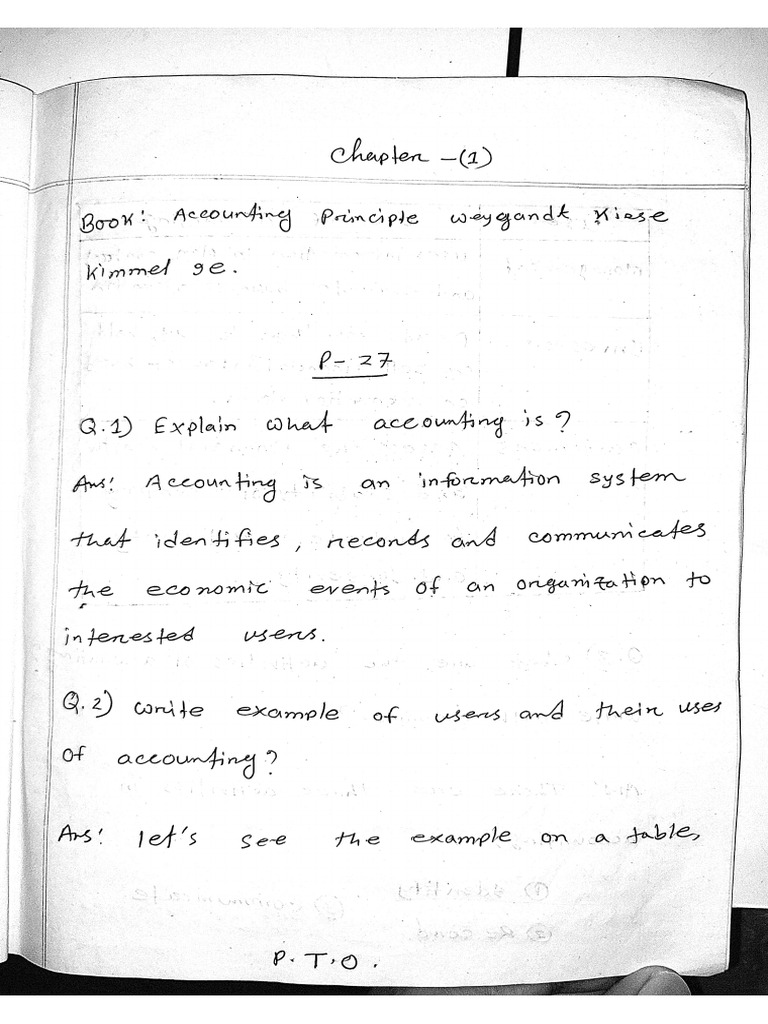 Chapter - (1)
Book: Accounting Principle Weygandt Kiese
Kimmel 9e.
P- 27
Q.1) Explain what accounting is?
Ans: Accounting is an information system
that identifies, records and communicates
the economic events of an organization to
interested users.
Q.2) Write example of users and their uses
of accounting?
Ans: let's see the example on a table,
P.T.O.